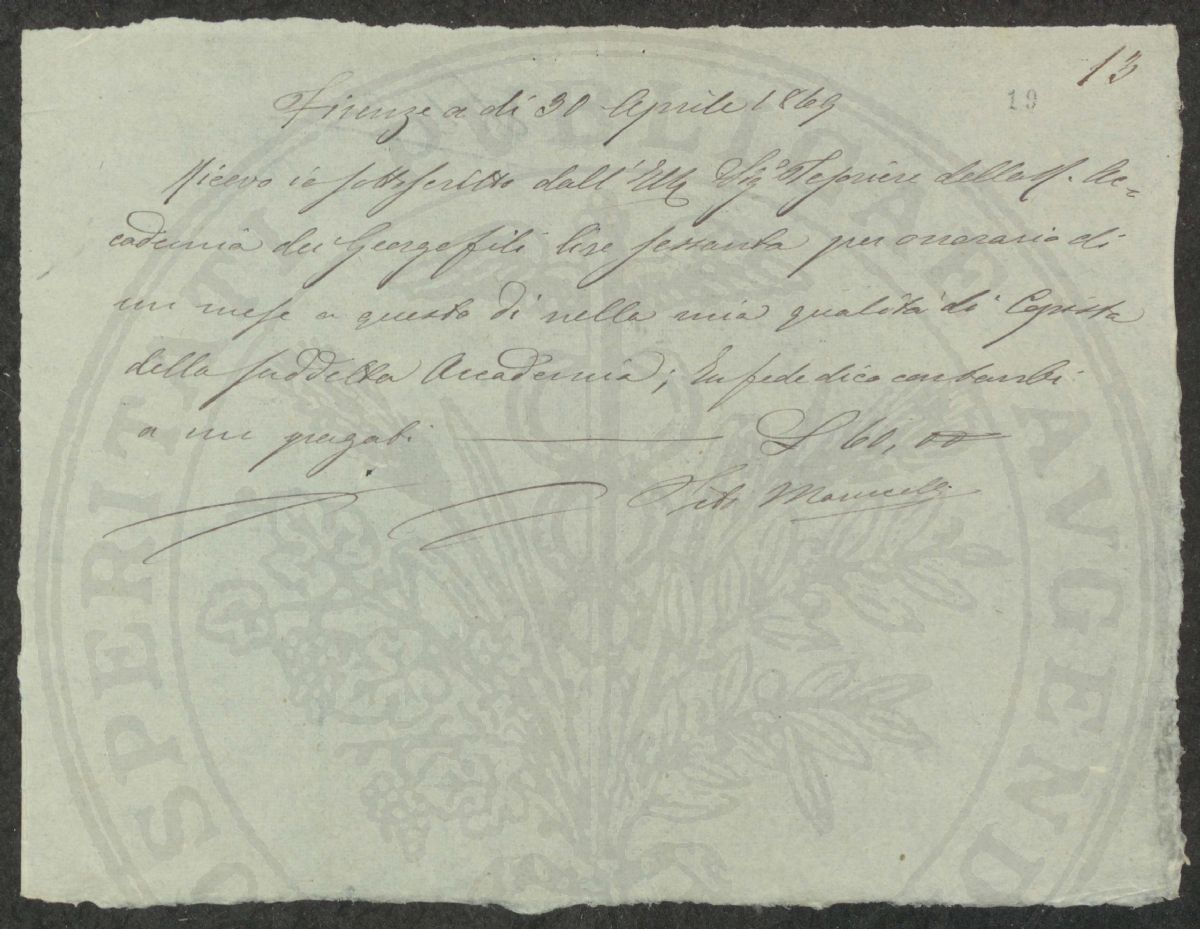 13
19
Firenze a di 30 Aprile 1869
Ricevo io sottoscritto dall' Sigr Tesoriere della R. Ac=
cademia dei Georgofili lire sessanta per onorario di
un mese a questo dì nella mia qualità di Copista
della suddetta Accademia; In fede dico contanti
a me pagati ——— L 60, 00
Tito
PROSPERITATI PUBLICAE AVGENDAE